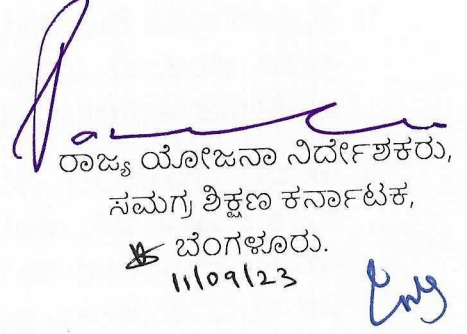 ರಾಜ್ಯ ಯೋಜನಾ ನಿರ್ದೇಶಕರು,
ಸಮಗ್ರ ಶಿಕ್ಷಣ ಕರ್ನಾಟಕ,
ಬೆಂಗಳೂರು.
11/09/23